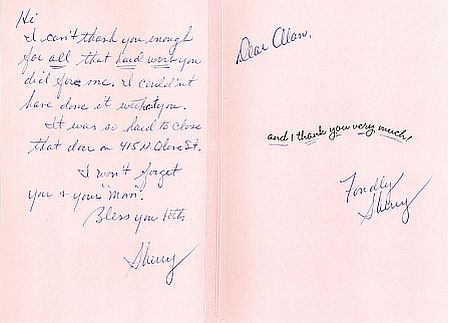 Hi
I can't thank you enough
for all that hard work you
did for me. I couldn't
have done it without you.
It was so hard to close
that door on 415 N. Olive St.
I won't forget
you & your "Mom".
Bless you both
Sherry
Dear Alan,
and I thank you very much!
Fondly
Sherry